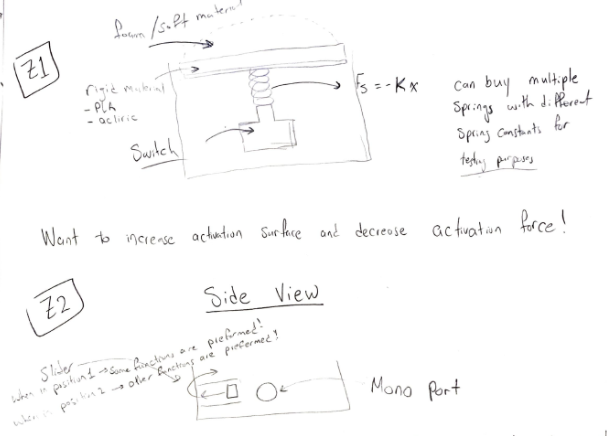 Z1
foam/soft material
rigid material
- PLA
- acliric
Switch
Fs = -Kx
can buy multiple
Springs with different
Spring constants for
testing purposes
Want to increase activation Surface and decrease activation force!
Z2
Side View
Slider
when in position 1 → Some functions are preformed!
when in position 2 → other functions are preformed!
Mono Port